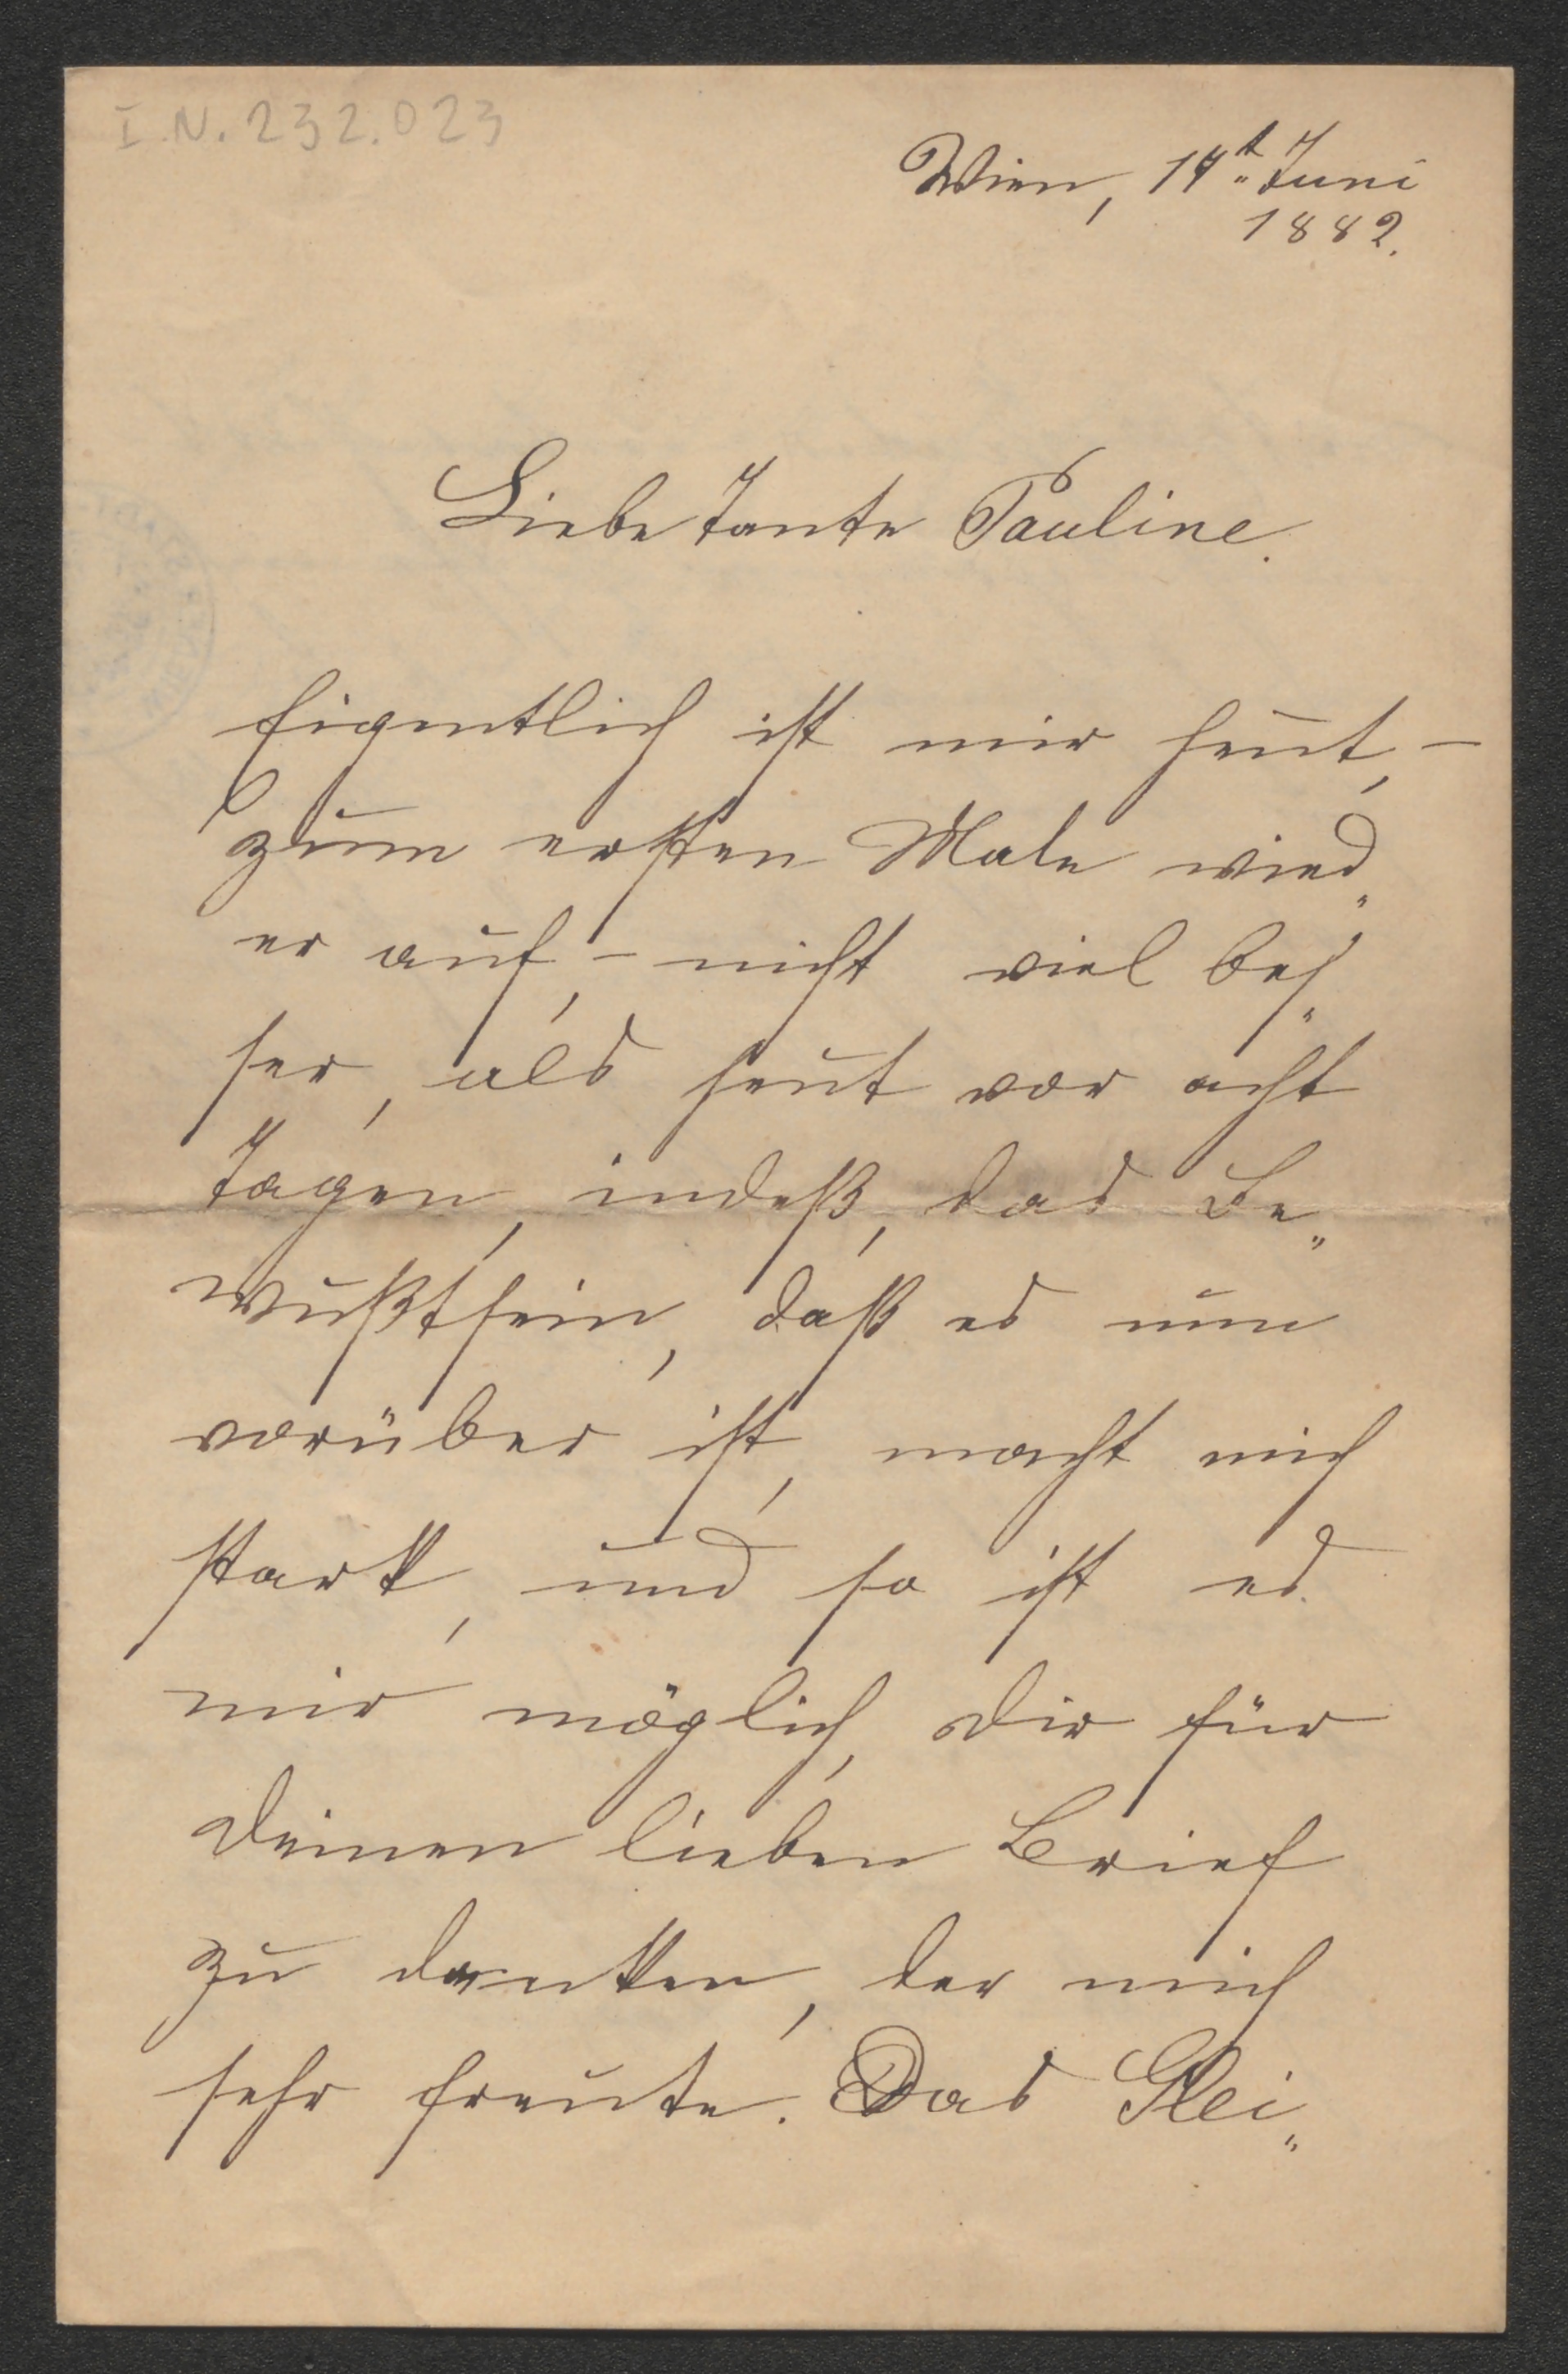 I.N. 232.023
Wien, 14t. Juni
1882.
Liebe Tante Pauline.
Eigentlich ist mir heut, –
zum ersten Male wied„
er auf, – nicht viel bes„
ser, als heut vor acht
Tagen, indeß, das Be„
wußtsein, daß es nun
vorüber ist, macht mich
stark, und so ist es
mir möglich, Dir für
Deinen lieben Brief
zu danken, der mich
sehr freute. Das Klei„